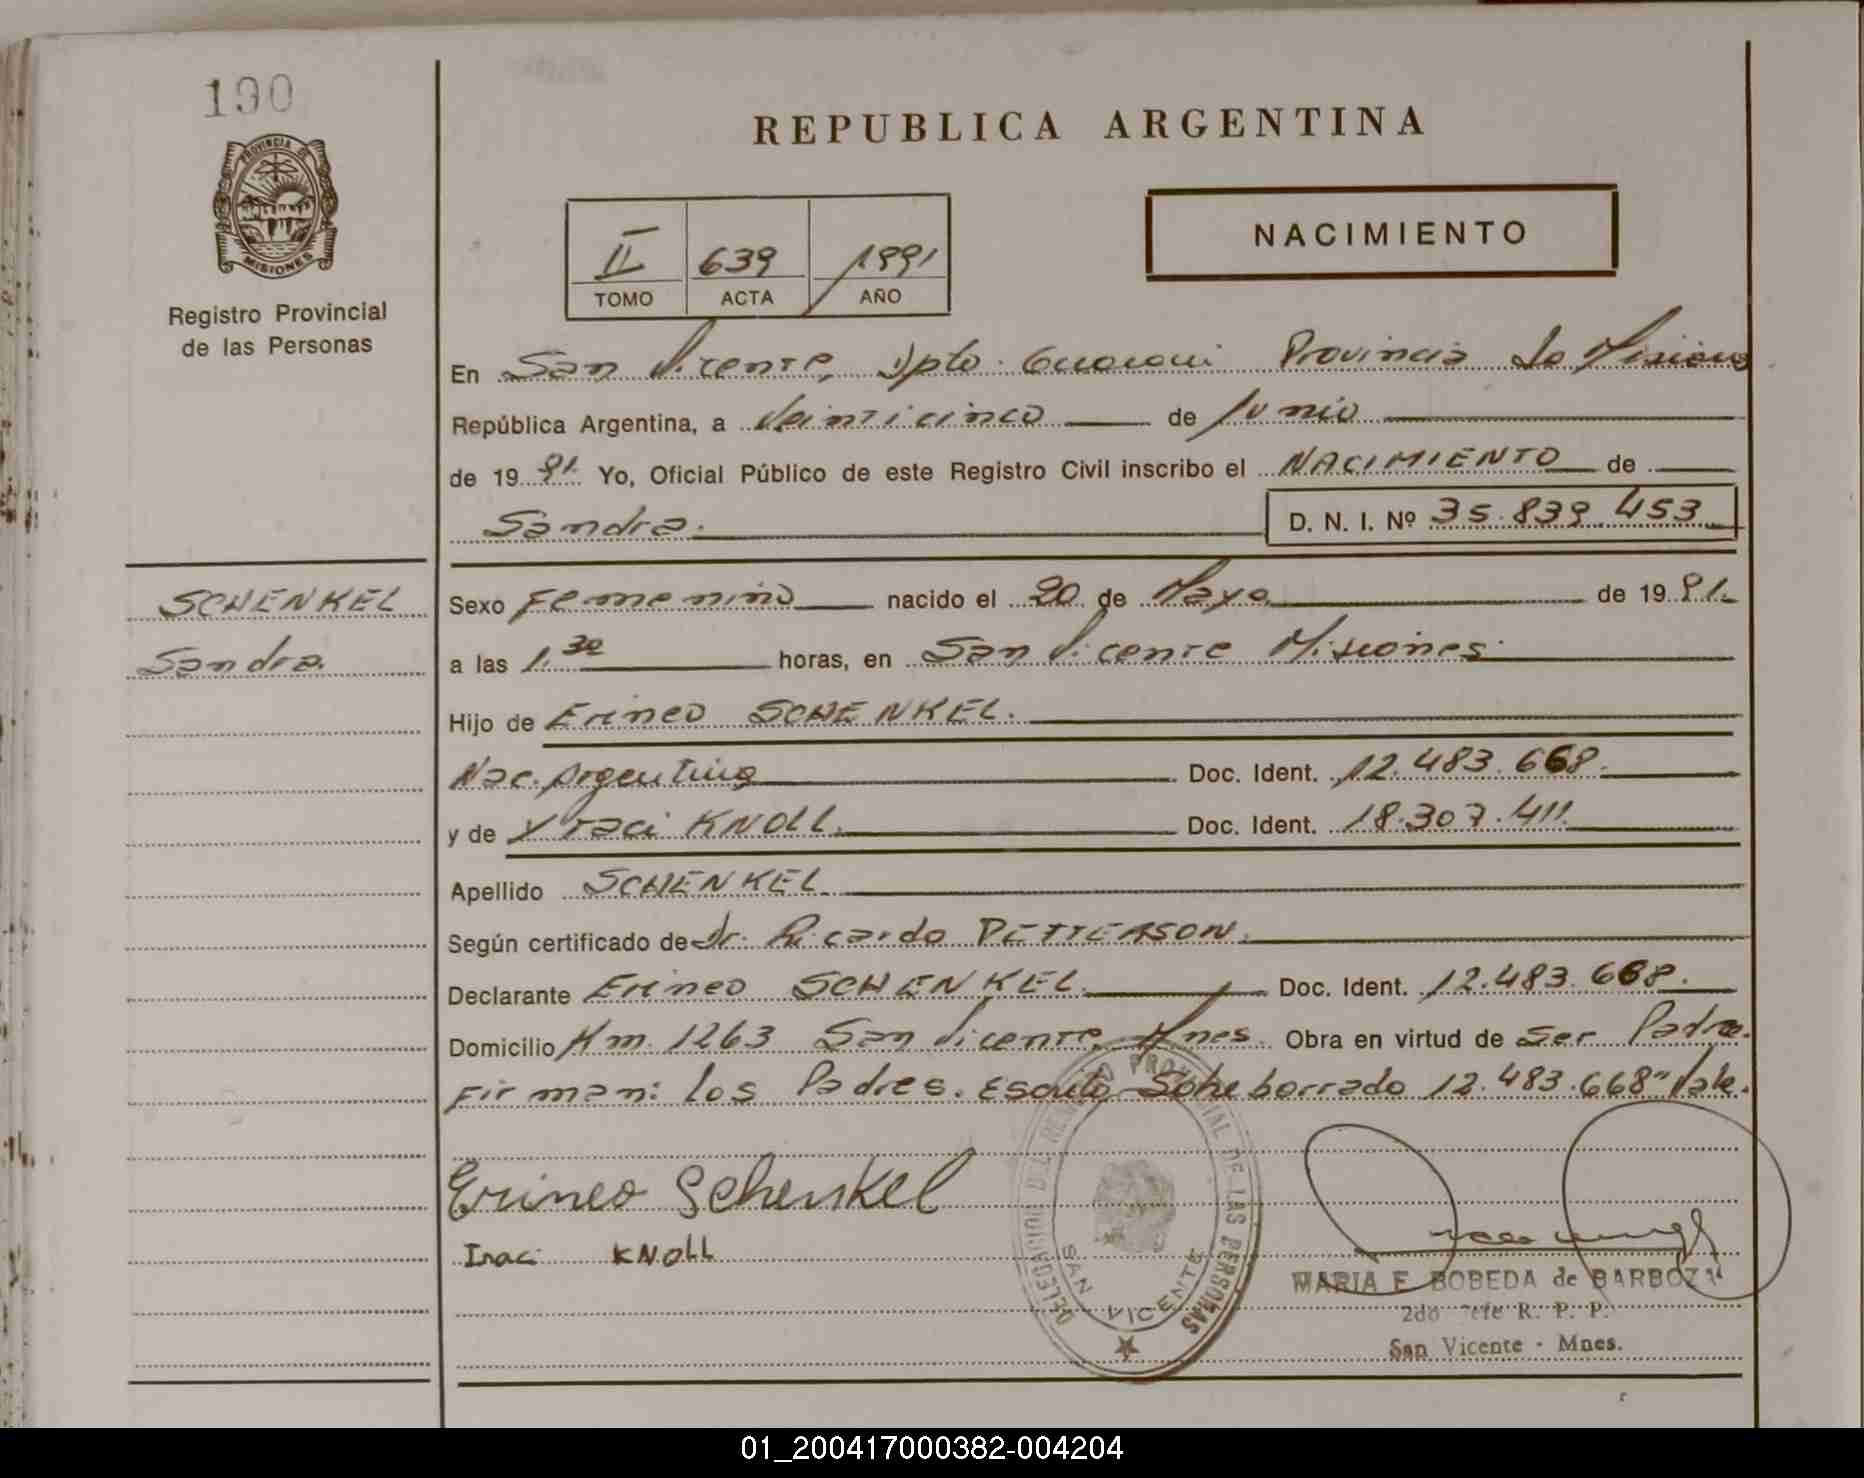 190
PROVINCIA DE
MISIONES
Registro Provincial
de las Personas
REPUBLICA ARGENTINA
II 639 1991
TOMO ACTA AÑO
NACIMIENTO
En San Vicente, Dpto. Guarani Provincia de Misiones
República Argentina, a Veinticinco de Junio
de 1991. Yo, Oficial Público de este Registro Civil inscribo el NACIMIENTO de
Sandra. D. N. I. Nº 35.839.453
SCHENKEL
Sandra.
Sexo Femenino nacido el 20 de Mayo de 1991.
a las 1.30 horas, en San Vicente Misiones.
Hijo de Erineo SCHENKEL.
Nac. Argentina Doc. Ident. 12.483.668.
y de Yraci KNOLL. Doc. Ident. 18.307.411
Apellido SCHENKEL
Según certificado de Dr. Ricardo PETTERSON.
Declarante Erineo SCHENKEL. Doc. Ident. 12.483.668.
Domicilio Km. 1263 San Vicente, Mnes. Obra en virtud de ser Padre.
Firman: los Padres. Escrito Sobreborrado 12.483.668" Vale.
Erineo Schenkel
Iraci KNOLL
DELEGACION DEL REGISTRO PROVINCIAL DE LAS PERSONAS
SAN VICENTE
MARIA E. BOBEDA de BARBOZA
2do Jefe R. P. P.
San Vicente - Mnes.
01_200417000382-004204